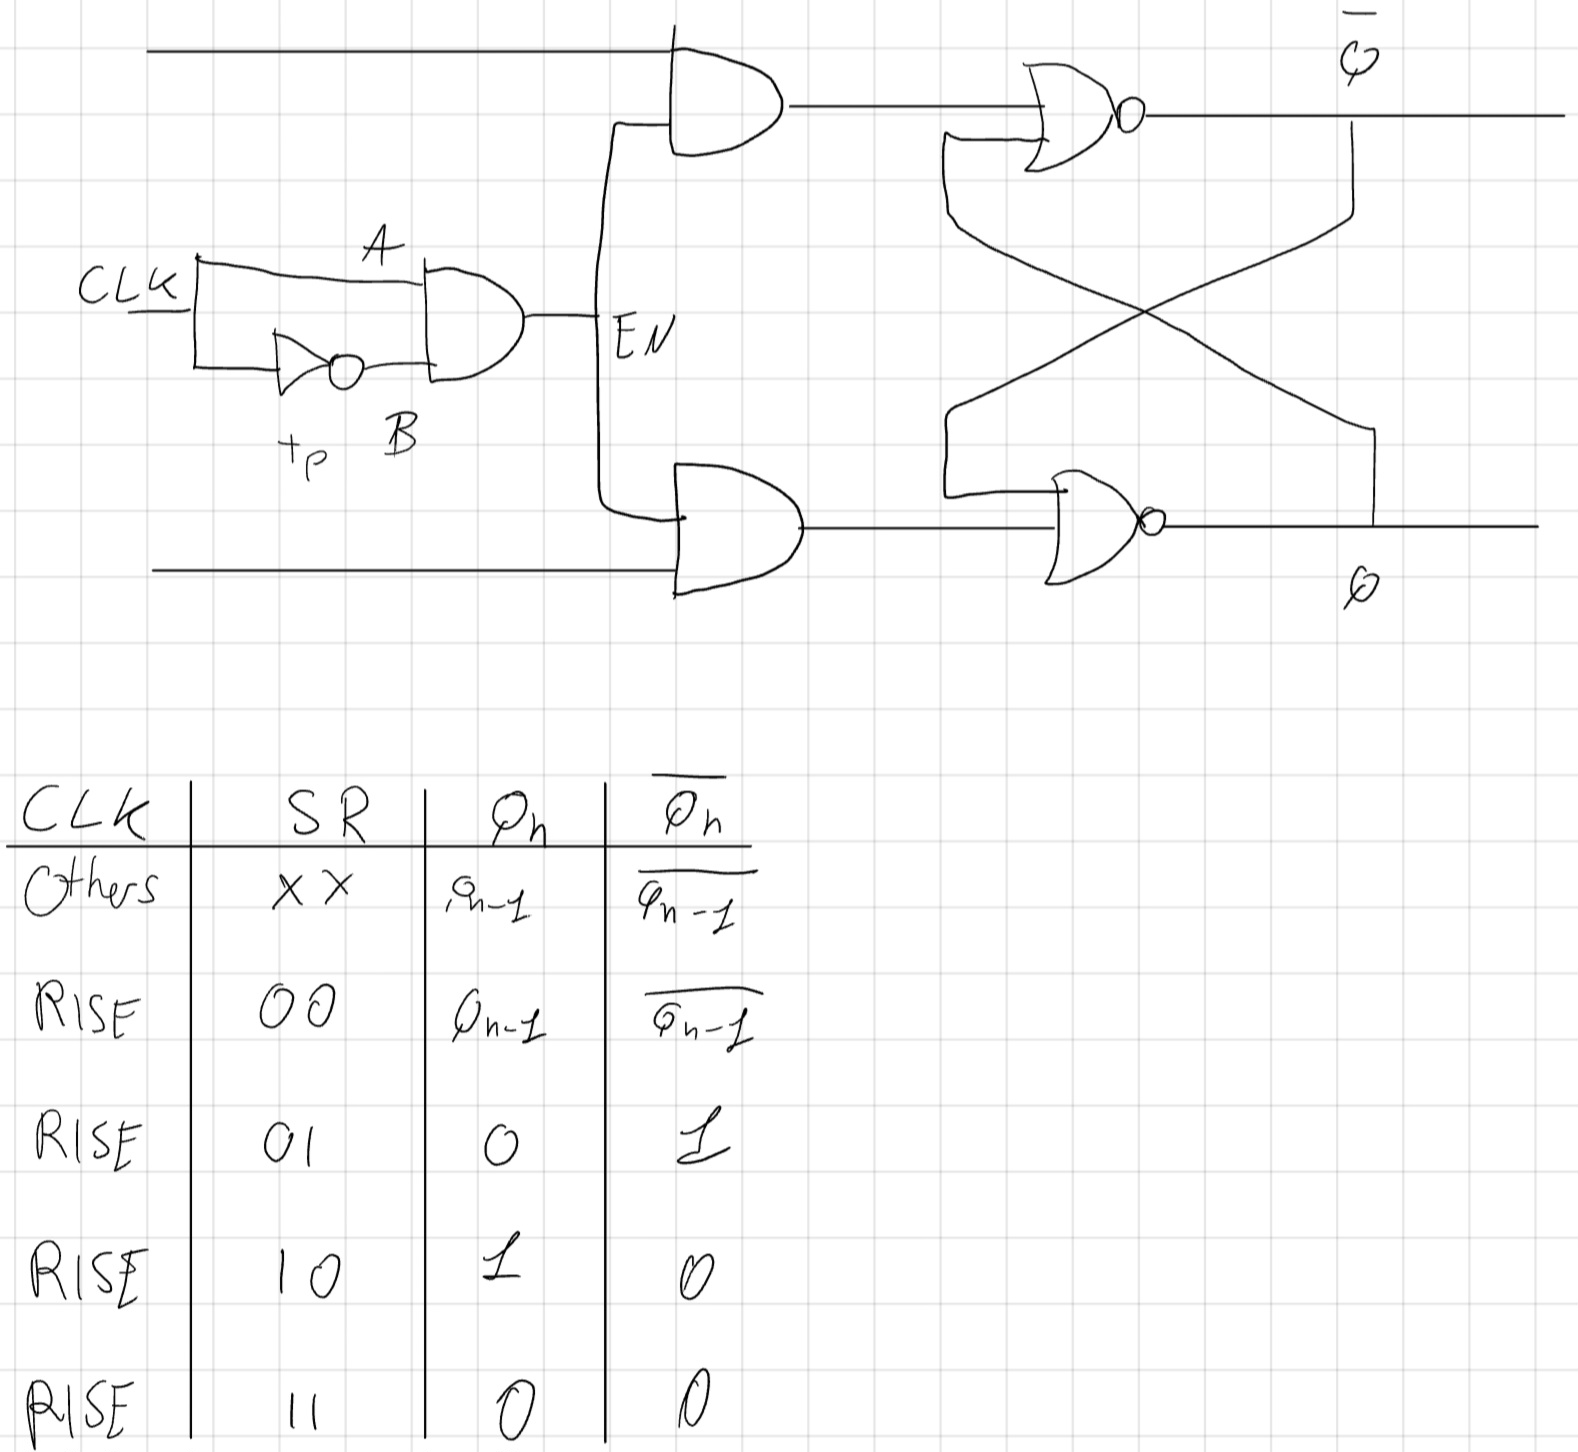 Q̅
A
CLK
EN
B
tp
Q
CLK SR Qn Q̅n̅
Others XX Qn-1 Q̅n̅-̅1̅
RISE 00 Qn-1 Q̅n̅-̅1̅
RISE 01 0 1
RISE 10 1 0
RISE 11 0 0